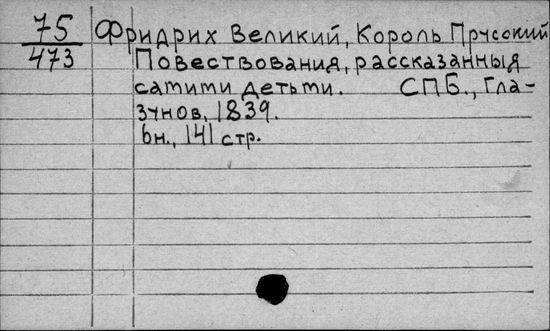 75
473
Фридрих Великий, Король Прусский
Повествования, рассказанныя
сатити детьти. СПБ., Гла-
зунов, 1839.
6н., 141 стр.